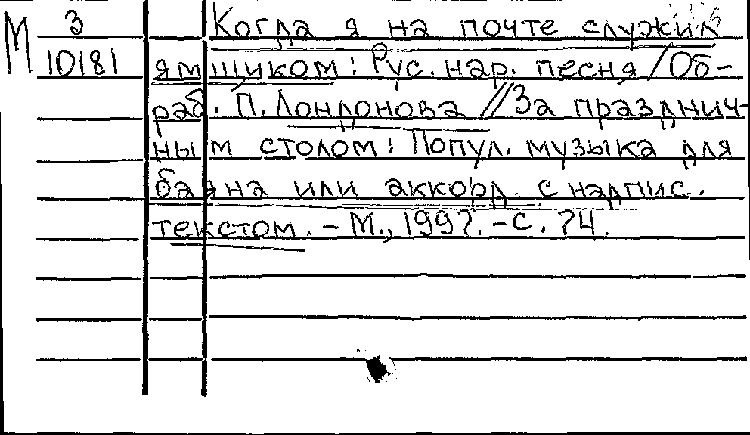 М З Когда я на почте служил
10181 ямщиком: Рус. нар. песня / Об-
раб. П. Лондонова // За празднич-
ным столом: Попул. музыка для
баяна или аккорд. с надпис.
текстом. - М., 1997. - с. 74.